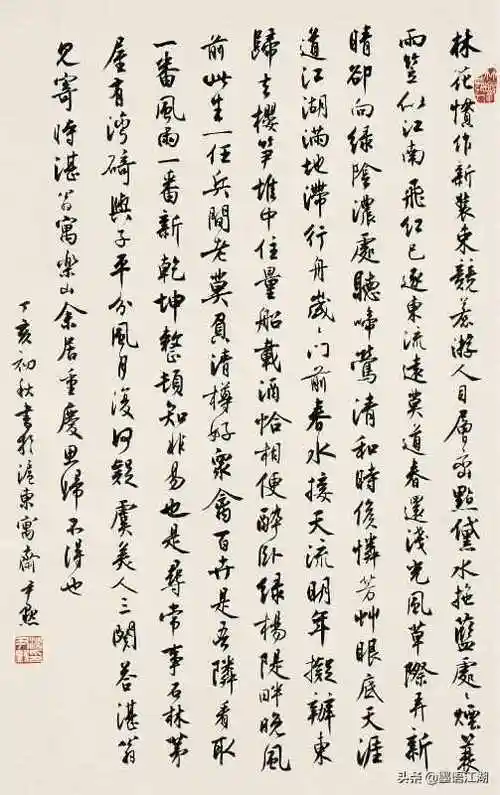 林花慣作新裝束競惹游人目層巒點黛水拖藍處々煙蓑
雨笠似江南飛紅已逐東流遠莫道春還淺光風草際弄新
晴卻向綠陰濃處聽啼鶯清和時候憐芳艸眼底天涯
道江湖滿地滯行舟歲々門前春水接天流明年擬辦東
歸去櫻筍堆中住量船載酒恰相便醉臥綠楊隄畔晚風
前此生一任兵間老莫負清樽好眾禽百卉是吾隣看取
一番風雨一番新乾坤整頓知非易也是尋常事石林茅
屋有灣碕與子平分風月復何疑虞美人三闋答湛翁
見寄時湛翁寓樂山余居重慶思歸不得也
丁亥初秋書於滬東寓齋尹默
头条 @墨语江湖